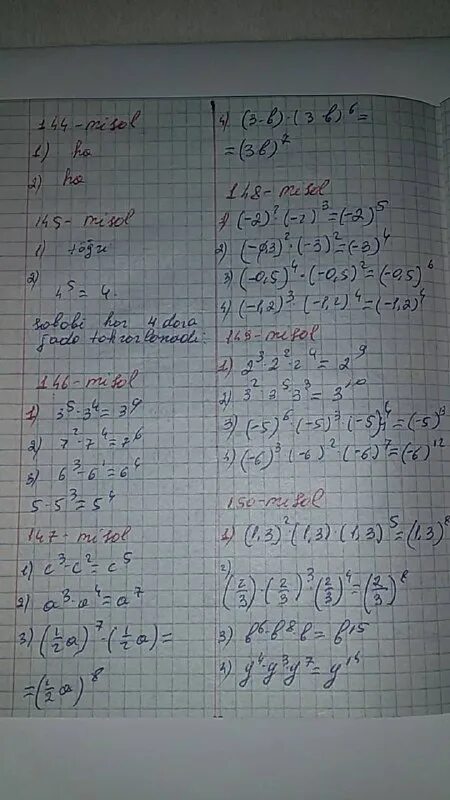 144-misol
1) ha
2) ha
145-misol
1) to'g'ri
2)
4⁵ = 4.
sababi har 4 dara
146-misol
1) 3⁵·3⁴=3⁹
2) 7²·7⁴=7⁶
3) 6³·6¹=6⁴
5·5³=5⁴
147-misol
1) c³·c²=c⁵
2) a³·a⁴=a⁷
3) (1/2 a)⁷·(1/2 a)=
=(1/2 a)⁸
4) (3-b)·(3-b)⁶=
=(3b)⁷
148-misol
1) (-2)²·(-2)³=(-2)⁵
2) (-3)²·(-3)²=(-3)⁴
3) (-0,5)⁴·(-0,5)²=(-0,5)⁶
4) (-1,2)³·(-1,2)⁴=(-1,2)⁴
149-misol
1) 2³·2²·2⁴=2⁹
2) 3²·3⁵·3³=3¹⁰
3) (-5)⁶·(-5)³·(-5)⁴=(-5)¹³
4) (-6)³·(-6)²·(-6)⁷=(-6)¹²
150-misol
1) (1,3)²·(1,3)·(1,3)⁵=(1,3)⁸
2)
(2/3)·(2/3)³·(2/3)⁴=(2/3)⁸
3) b⁶·b⁸·b=b¹⁵
4) y⁴·y³·y⁷=y¹⁴